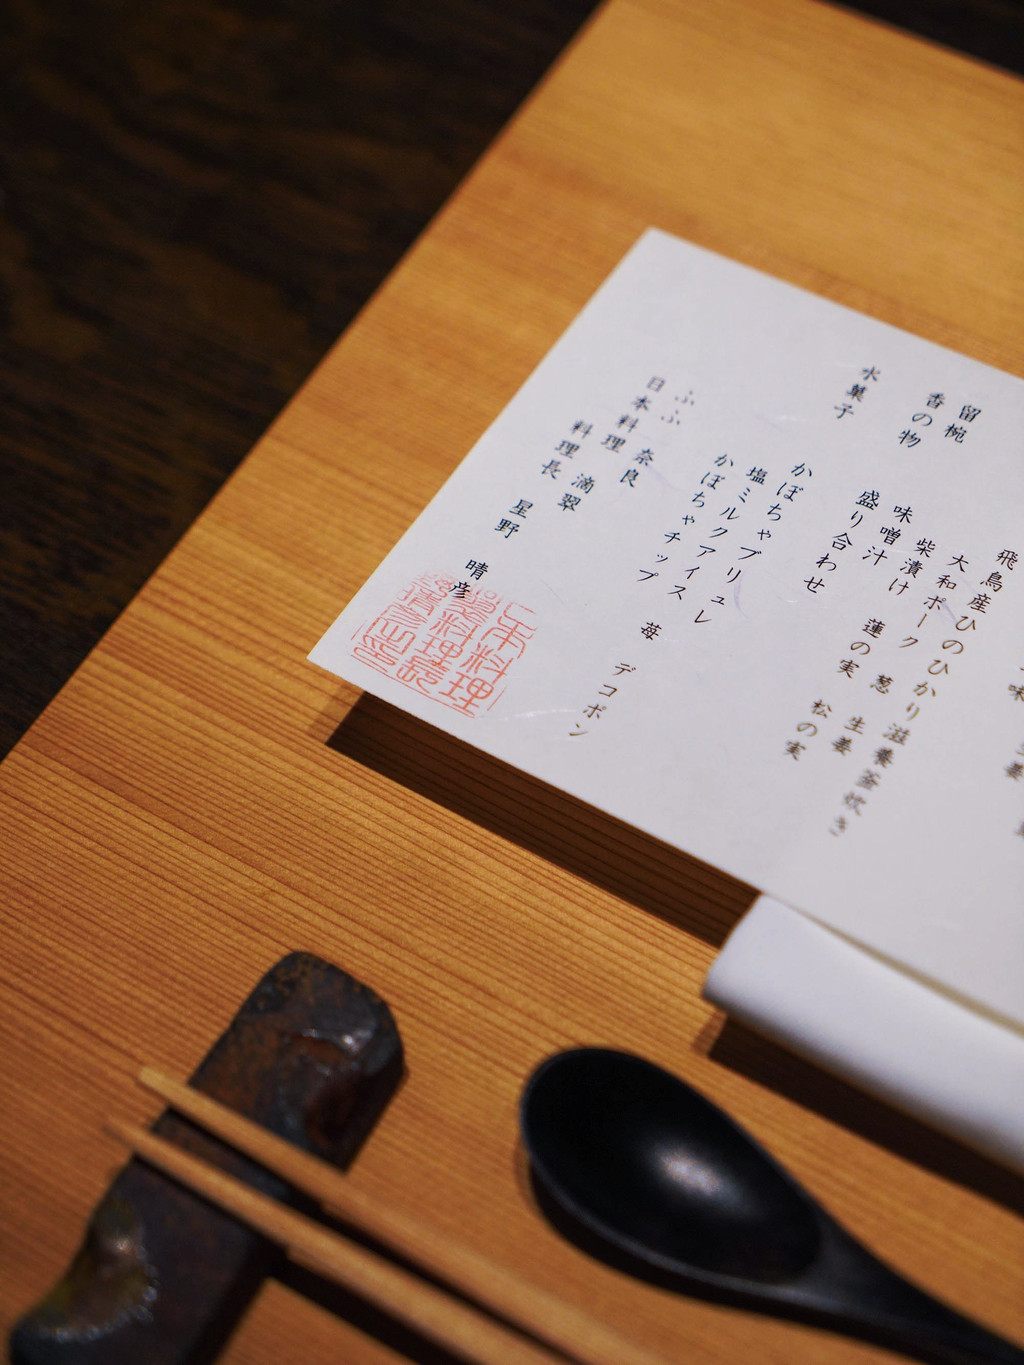 飛鳥産ひのひかり滋養釜炊き
大和ポーク 葱 生姜
柴漬け 蓮の実 松の実
留椀 味噌汁
香の物 盛り合わせ
水菓子 かぼちゃブリュレ
塩ミルクアイス 苺 デコポン
かぼちゃチップ
ふふ 奈良
日本料理 滴翠
料理長 星野 晴彦